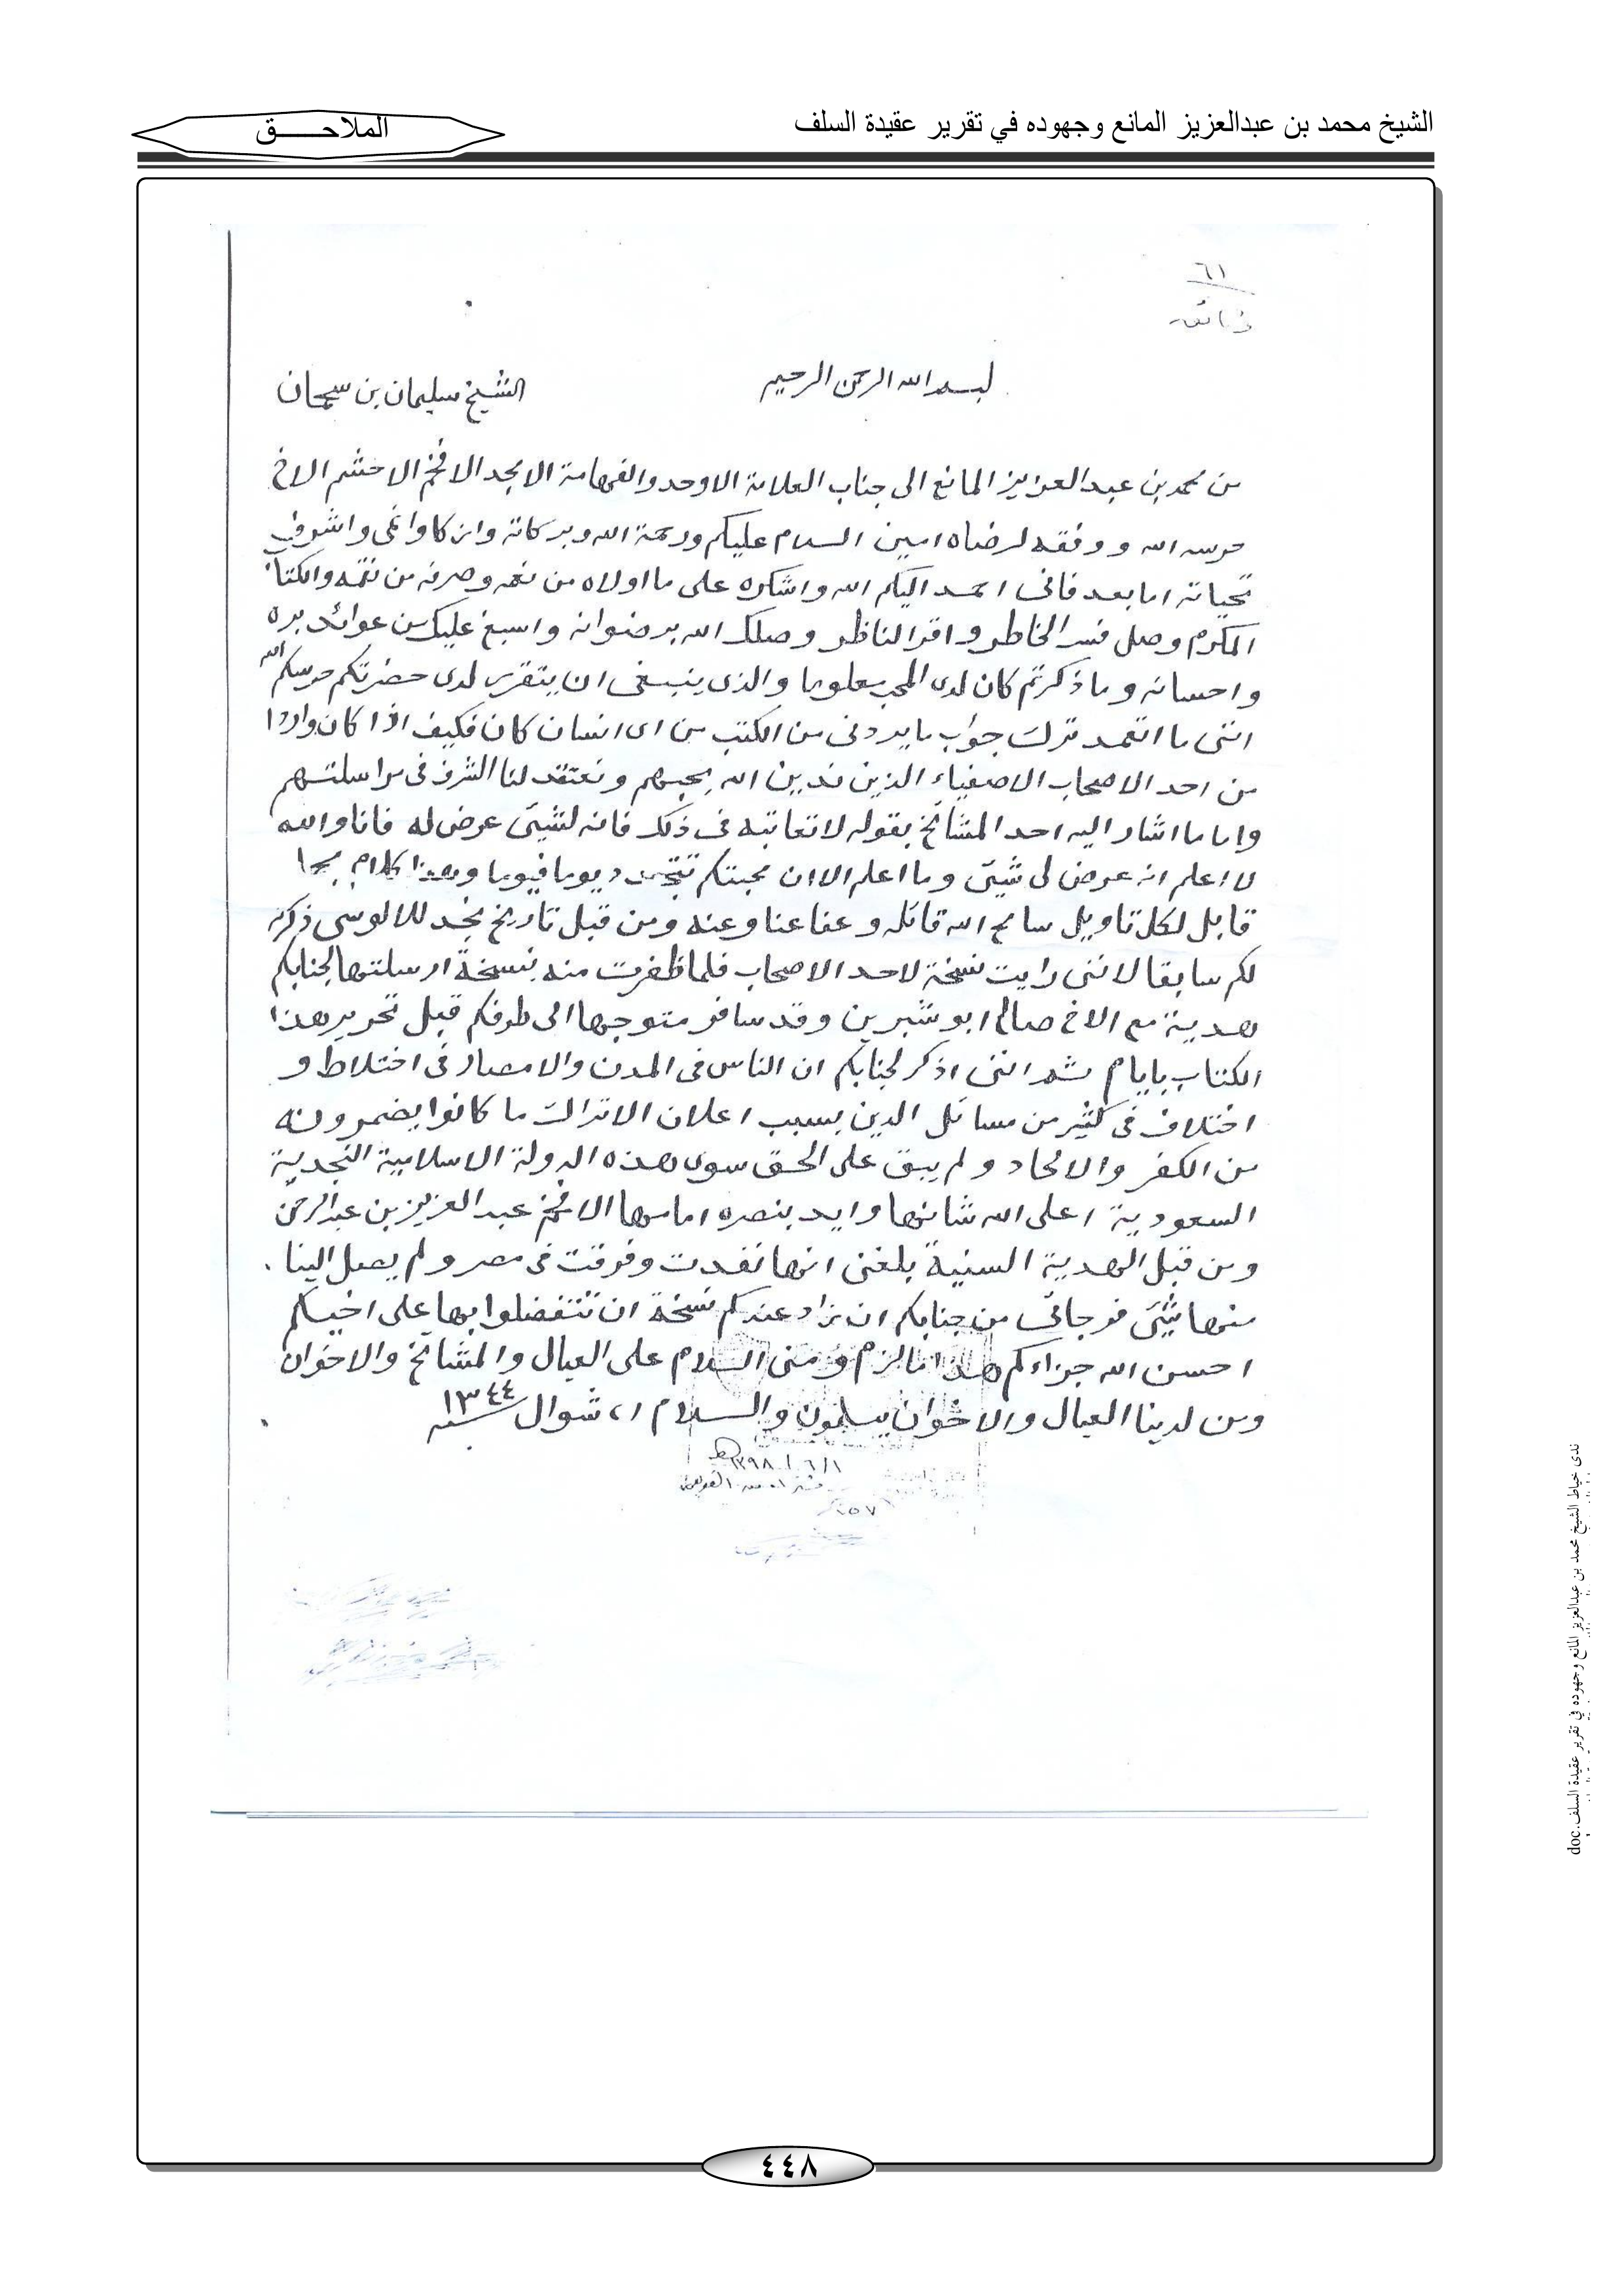 الشيخ محمد بن عبدالعزيز المانع وجهوده في تقرير عقيدة السلف
الملاحـــــق
٦١
بسم الله الرحمن الرحيم
الشيخ سليمان بن سحمان
من محمد بن عبد العزيز المانع الى جناب العلامة الاوحد والفهامة الامجد الافخم الاحشم الاخ
حرسه الله ووفقه لرضاه امين السلام عليكم ورحمة الله وبركاته وازكا وانمى واشرف
تحياته اما بعد فانى احمد اليكم الله واشكره على ما اولاه من نعمه وصرفه من نقمه والكتاب
المكرم وصل فسر الخاطر واقر الناظر وصلك الله برضوانه واسبغ عليك من عوائد بره
واحسانه وما ذكرتم كان لدى المحب معلوما والذى ينبغى ان يتقرر لدى حضرتكم حرسكم الله
اننى ما اتعمد ترك جواب ما يردنى من الكتب من اى انسان كان فكيف اذا كان واردا
من احد الاصحاب الاصفياء الذين ندين الله بحبهم ونعتقد لنا الشرف فى مراسلتهم
واما ما اشار اليه احد المشائخ بقوله لا تعاتبه فى ذلك فانه لشيئ عرض له فانا والله
لا اعلم انه عرض لى شيئ وما اعلم الا ان محبتكم تتجدد يوما فيوما وهذا كلام
قابل لكل تاويل سامح الله قائله وعفا عنا وعنه ومن قبل تاريخ نجد للالوسى ذكرته
لكم سابقا لاننى رايت نسخة لاحد الاصحاب فلما ظفرت منه بنسخة ارسلتها لجنابكم
هدية مع الاخ صالح ابو شبرين وقد سافر متوجها الى طرفكم قبل تحرير هذا
الكتاب بايام ثم اننى اذكر لجنابكم ان الناس فى المدن والامصار فى اختلاط و
اختلاف فى كثير من مسائل الدين بسبب اعلان الاتراك ما كانوا يضمرونه
من الكفر والالحاد ولم يبق على الحق سوى هذه الدولة الاسلامية النجدية
السعودية اعلى الله شانها وايد بنصره امامها الافخم عبد العزيز بن عبد الرحمن
ومن قبل الهدية السنية بلغنى انها نفدت وفرقت فى مصر ولم يصل الينا
منها شيئ فرجائى من جنابكم ان زاد عندكم نسخة ان تتفضلوا بها على اخيكم
احسن الله جزاءكم هذا ما لزم ومنى السلام على العيال والمشائخ والاخوان
ومن لدينا العيال والاخوان يسلمون والسلام شوال سنه ١٣٤٤
١/٦/١٣٩٨هـ
٤٤٨
ندى خياط الشيخ محمد بن عبدالعزيز المانع وجهوده في تقرير عقيدة السلف.doc